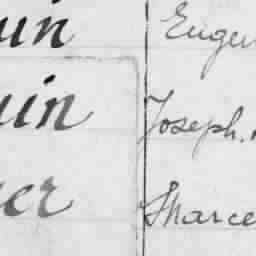 uin Eugen
uin Joseph.
er Marce